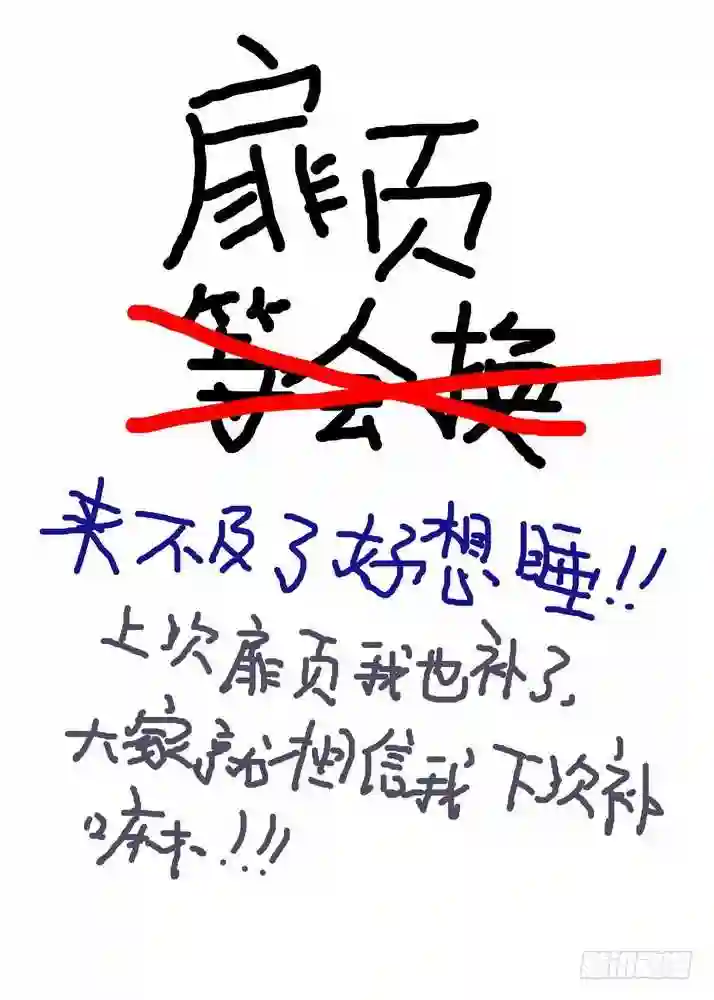 扉页
等会换
来不及了好想睡!!
上次扉页我也补了,
大家就相信我下次补
嘛!!!